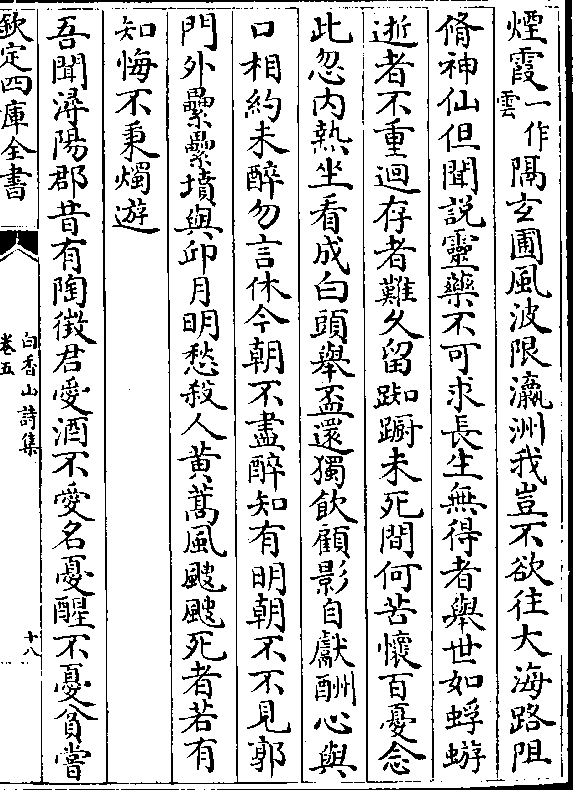 煙霞一作雲隔玄圃風波限瀛洲我豈不欲往大海路阻
脩神仙但聞說靈藥不可求長生無得者舉世如蜉蝣
逝者不重迴存者難久留踟蹰未死間何苦懷百憂念
此忽内熱坐看成白頭舉盃還獨飲顧影自獻酬心與
口相約未醉勿言休今朝不盡醉知有明朝不不見郭
門外纍纍墳與邱月明愁殺人黄蒿風颼颼死者若有
知悔不秉燭遊
吾聞潯陽郡昔有陶徵君愛酒不愛名憂醒不憂貧嘗
欽定四庫全書
白香山詩集
卷五
十八